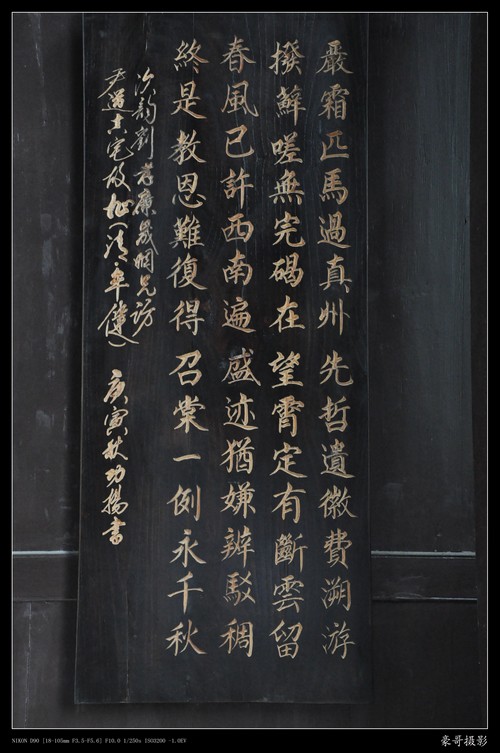 嚴霜匹馬過真州先哲遺徽費溯游
撥蘚嗟無完碣在望霄定有斷雲留
春風已許西南遍盛迹猶嫌辨駁稠
終是教恩難復得召棠一例永千秋
次韵劉孝廉姻兄訪
宅故址(清 庚寅秋功揚書
NIKON D90 [18-105mm F3.5-F5.6] F10.0 1/250s ISO3200 -1.0EV
豪哥摄影